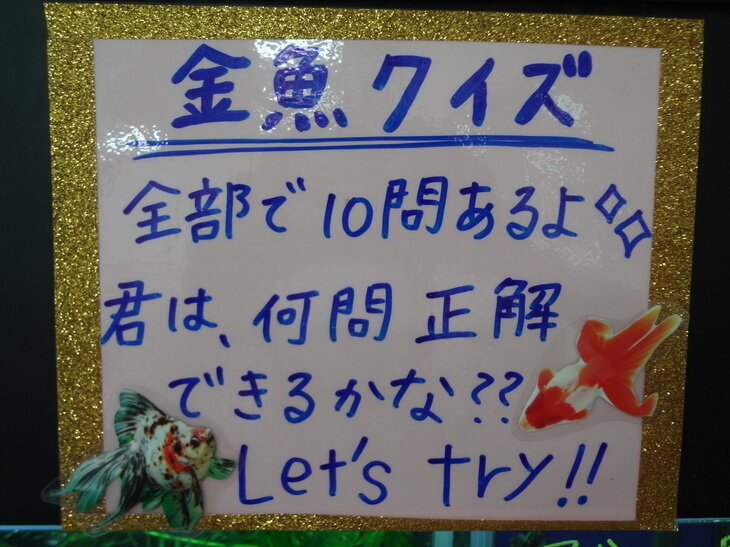 金魚クイズ
全部で10問あるよ
君は、何問正解
できるかな??
Let's try!!